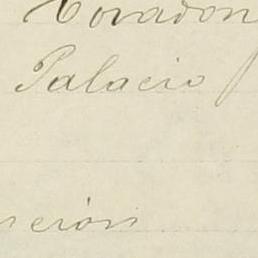 Covadon
Palacio
nción